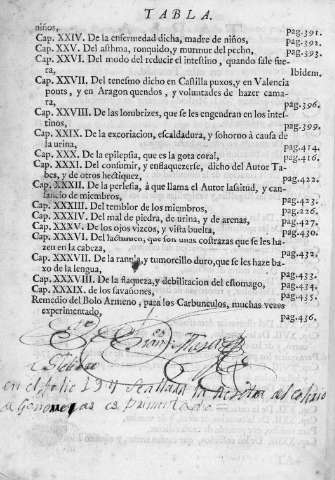 TABLA.
niños, pag.391.
Cap. XXIV. De la enfermedad dicha, madre de niños, pag.392.
Cap. XXV. Del asthma, ronquido, y murmur del pecho, pag.393.
Cap. XXVI. Del modo del reducir el intestino, quando sale fue-
ra, Ibidem.
Cap. XXVII. Del tenesmo dicho en Castilla puxos, y en Valencia
pouts, y en Aragon quendos, y voluntades de hazer cama-
ra, pag.396.
Cap. XXVIII. De las lombrizes, que se les engendran en los intes-
tinos, pag.399.
Cap. XXIX. De la excoriacion, escaldadura, y sohorno à causa de
la urina, pag.414.
Cap. XXX. De la epilepsia, que es la gota coral, pag.416.
Cap. XXXI. Del consumir, y enflaquezerse, dicho del Autor Ta-
bes, y de otros hectiquez, pag.422.
Cap. XXXII. De la perlesia, à que llama el Autor lassitud, y can-
sancio de miembros, pag.423.
Cap. XXXIII. Del temblor de los miembros, pag.426.
Cap. XXXIV. Del mal de piedra, de urina, y de arenas, pag.427.
Cap. XXXV. De los ojos vizcos, y vista buelta, pag.430.
Cap. XXXVI. Del lactumen, que son unas costrazas que se les ha-
zen en la cabeza, pag.432.
Cap. XXXVII. De la ranula, y tumorcillo duro, que se les haze ba-
xo de la lengua, pag.433.
Cap. XXXVIII. De la flaqueza, y debilitacion del estomago, pag.434.
Cap. XXXIX. de los savañones, pag.435.
Remedio del Bolo Armeno, para los Carbunculos, muchas vezes
experimentado, pag.436.
en el folio